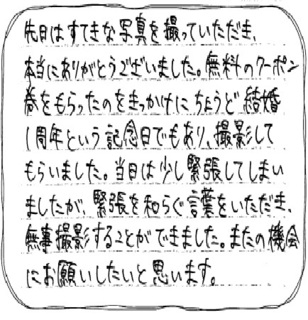 先日はすてきな写真を撮っていただき、
本当にありがとうございました。無料のクーポン
券をもらったのをきっかけにちょうど結婚
1周年という記念日でもあり、撮影して
もらいました。当日は少し緊張してしまい
ましたが、緊張を和らぐ言葉をいただき、
無事撮影することができました。またの機会
にお願いしたいと思います。